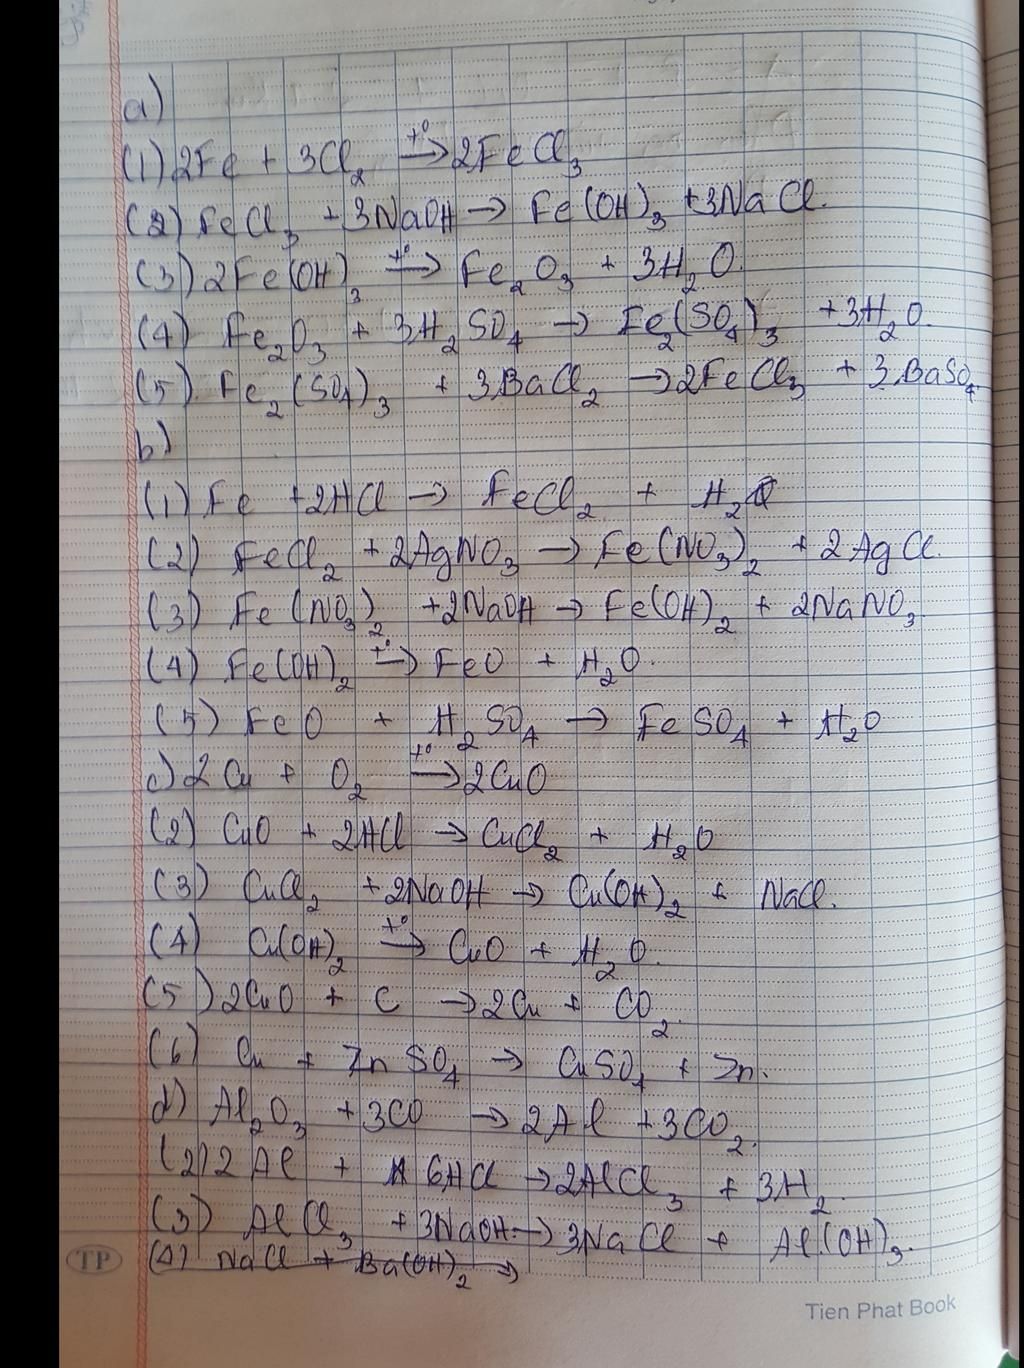 a)
(1) 2Fe + 3Cl₂ →(t°) 2FeCl₃
(2) FeCl₃ + 3NaOH → Fe(OH)₃ + 3NaCl.
(3) 2Fe(OH)₃ →(t°) Fe₂O₃ + 3H₂O.
(4) Fe₂O₃ + 3H₂SO₄ → Fe₂(SO₄)₃ + 3H₂O.
(5) Fe₂(SO₄)₃ + 3BaCl₂ → 2FeCl₃ + 3BaSO₄
b)
(1) Fe + 2HCl → FeCl₂ + H₂
(2) FeCl₂ + 2AgNO₃ → Fe(NO₃)₂ + 2AgCl.
(3) Fe(NO₃)₂ + 2NaOH → Fe(OH)₂ + 2NaNO₃
(4) Fe(OH)₂ →(t°) FeO + H₂O.
(5) FeO + H₂SO₄ → FeSO₄ + H₂O
c) 2Cu + O₂ →(t°) 2CuO
(2) CuO + 2HCl → CuCl₂ + H₂O
(3) CuCl₂ + 2NaOH → Cu(OH)₂ + NaCl.
(4) Cu(OH)₂ →(t°) CuO + H₂O.
(5) 2CuO + C → 2Cu + CO₂.
(6) Cu + ZnSO₄ → CuSO₄ + Zn.
d) Al₂O₃ + 3CO → 2Al + 3CO₂.
(2) 2Al + 6HCl → 2AlCl₃ + 3H₂.
(3) AlCl₃ + 3NaOH → 3NaCl + Al(OH)₃.
(4) NaCl + Ba(OH)₂ →
TP
Tien Phat Book